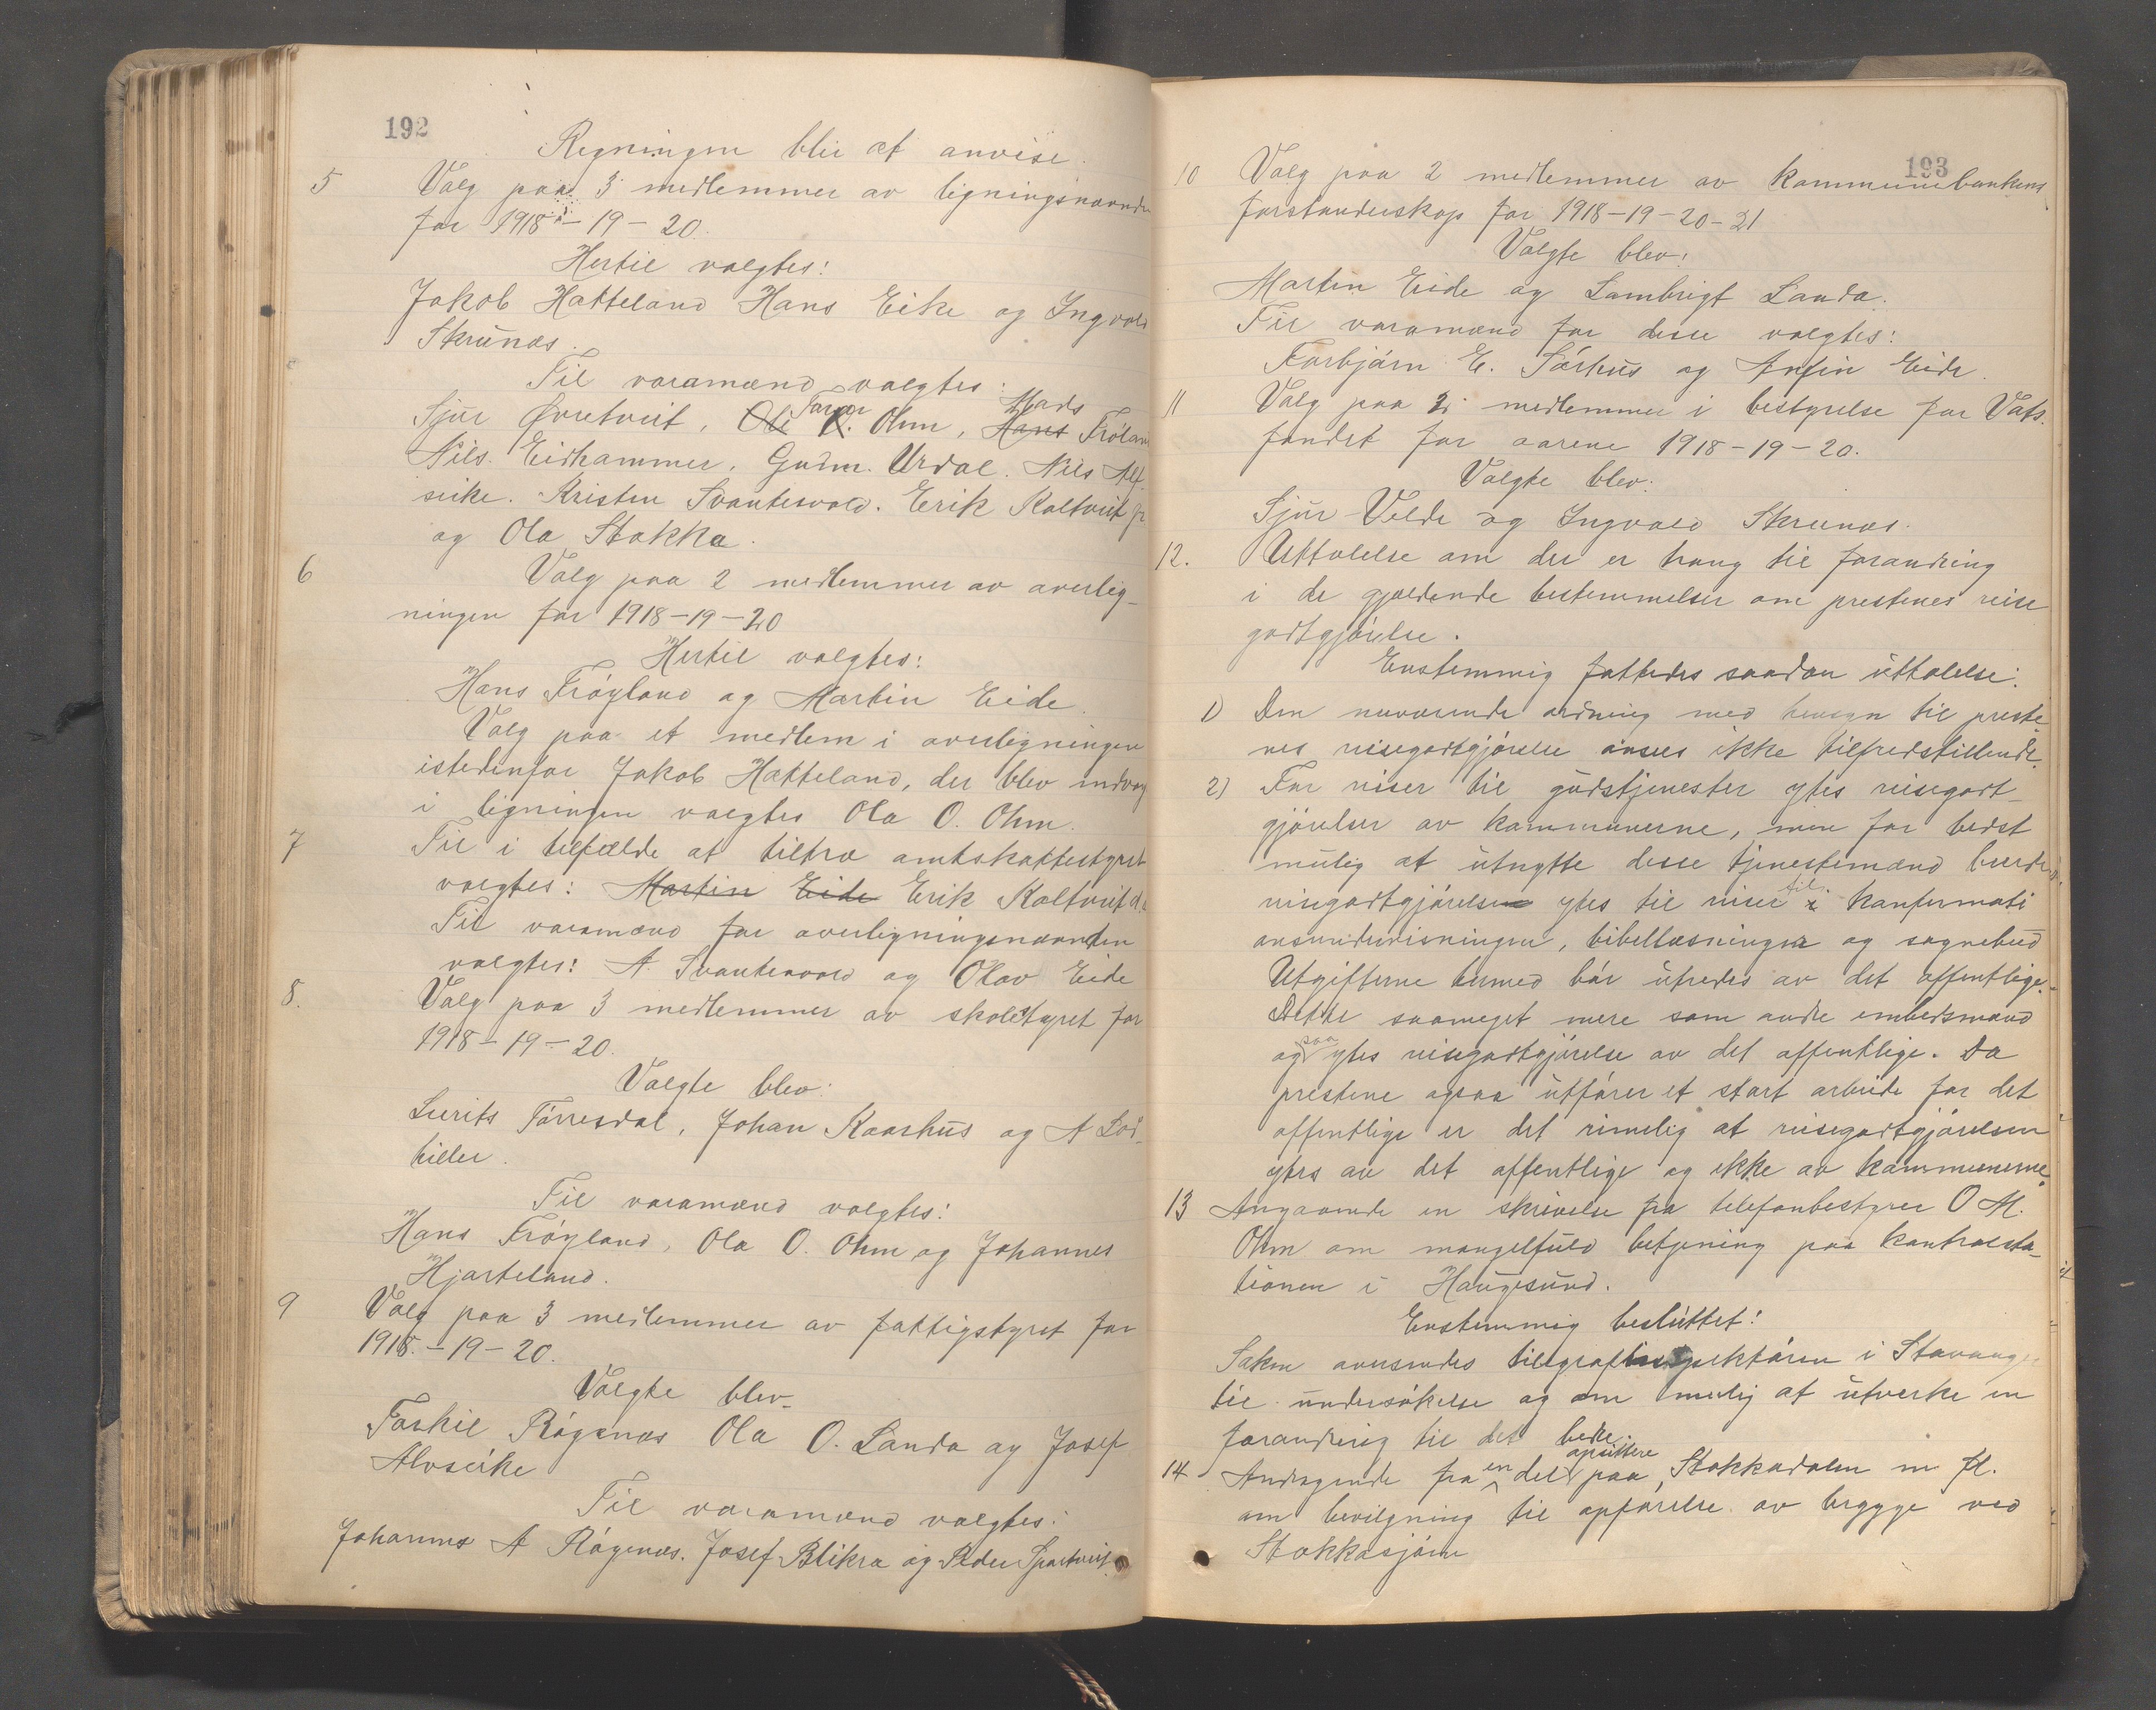 192
Regningen blir at anvise.
5 Valg paa 3 medlemmer av ligningsnævnden
for 1918 - 19 - 20.
Hertil valgtes:
Jakob Hatteland Hans Eike og Ingvald
Skrunæs.
Til varamænd valgtes:
Sjur Øvretveit, Ole O. Ohm, Hans Mads Fröland
Nils Eidhammer, Gudm. Urdal. Nils Alf-
seike. Kristen Svantesvold. Erik Kaltveit
og Ola Stakka.
6 Valg paa 2 medlemmer av overlig-
ningen for 1918 - 19 - 20
Hertil valgtes:
Hans Fröyland og Martin Eide.
Valg paa et medlem i overligningen
istedenfor Jakob Hatteland, der blev indvalg
i ligningen valgtes Ola O. Ohm.
7 Til i tilfælde at tiltræ amtskattestyret
valgtes: Martin Eide Erik Kaltveit
Til varamænd for overligningsnævnden
valgtes: A. Svantesvold og Olav Eide
8. Valg paa 3 medlemmer av skolestyret for
1918 - 19 - 20.
Valgte blev:
Lurits Törresdal, Johan Kaarhus og A
Til varamænd valgtes:
Hans Fröyland, Ola O. Ohm og Johannes
Hjarteland.
9 Valg paa 3 medlemmer av fattigstyret for
1918. - 19 - 20.
Valgte blev
Torkil Rögenæs Ola O. Landa og Josef
Alvseike
Til varamænd valgtes:
Johannes A Rögenæs. Josef Blikra og Peder
193
10 Valg paa 2 medlemmer av kommunebankens
forstanderskap for 1918 - 19 - 20 - 21
Valgte blev:
Martin Eide og Lambrigt Landa.
Til varamænd for disse valgtes:
Torbjörn E. Sörhus og Anfin Eide.
11 Valg paa 2 medlemmer i bestyrelse for Vats
fondet for aarene 1918 - 19 - 20.
Valgte blev:
Sjur Velde og Ingvald Skrunæs.
12. Uttalelse om der er trang til forandring
i de gjældende bestemmelser om prestenes reise
godtgjörelse.
Enstemmig fattedes saadan uttalelse:
1) Den nuværende ordning med hensyn til preste
nes reisegodtgjörelse ansees ikke tilfredstillende.
2) For reiser til gudstjenester ytes reisegodt-
gjörelser av kommunerne, men for bedst
mulig at utnytte disse tjenestemænd burde
reisegodtgjörelsen ytes til reiser til konfirmati
onsundervisningen, bibellæsninger og sognebud
Utgifterne hermed bör utredes av det offentlige.
Dette saameget mere som andre embedsmænd
ogsaa ytes reisegodtgjörelse av det offentlige. Da
prestene ogsaa utförer et stort arbeide for det
offentlige er det rimelig at reisegodtgjörelsen
ytes av det offentlige og ikke av kommunerne.
13 Angaaende en skrivelse fra telefonbestyrer O M.
Ohm om mangelfuld betjening paa kontrolsta-
tionen i Haugesund.
Enstemmig besluttet:
Saken oversendes telegrafinspektören i Stavanger
til undersökelse og om mulig at utvirke en
forandring til det bedre.
14 Andragende fra en del opsittere paa Stakkadalen m fl.
om bevilgning til opförelse av brygge ved
Stakkasjöen